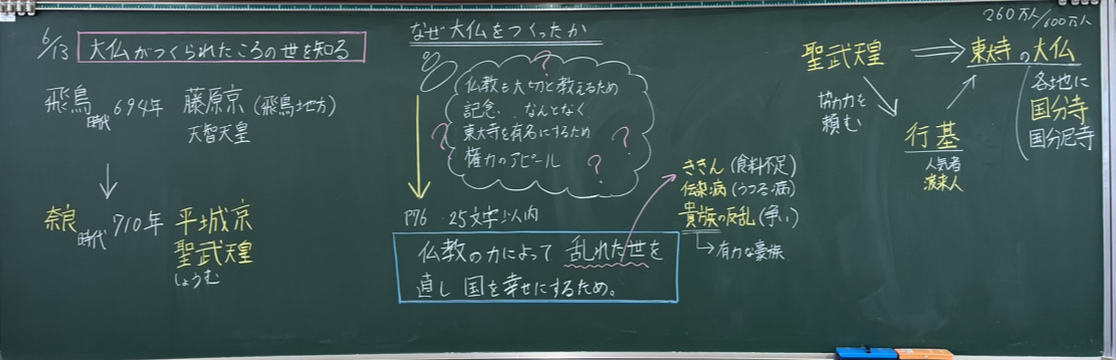 6/13 大仏がつくられたころの世を知る
飛鳥時代 694年 藤原京(飛鳥地方)
天智天皇
奈良時代 710年 平城京
聖武天皇
しょうむ
なぜ大仏をつくったか
仏教を大切と教えるため
記念、なんとなく
東大寺を有名にするため
権力のアピール
?
?
?
?
P76 25文字以内
仏教の力によって乱れた世を
直し国を幸せにするため。
ききん(食料不足)
伝染病(うつる病)
貴族の反乱(争い)
→有力な豪族
260万人/600万人
聖武天皇 ⇒ 東大寺の大仏
協力を
頼む
行基
人気者
渡来人
各地に
国分寺
国分尼寺